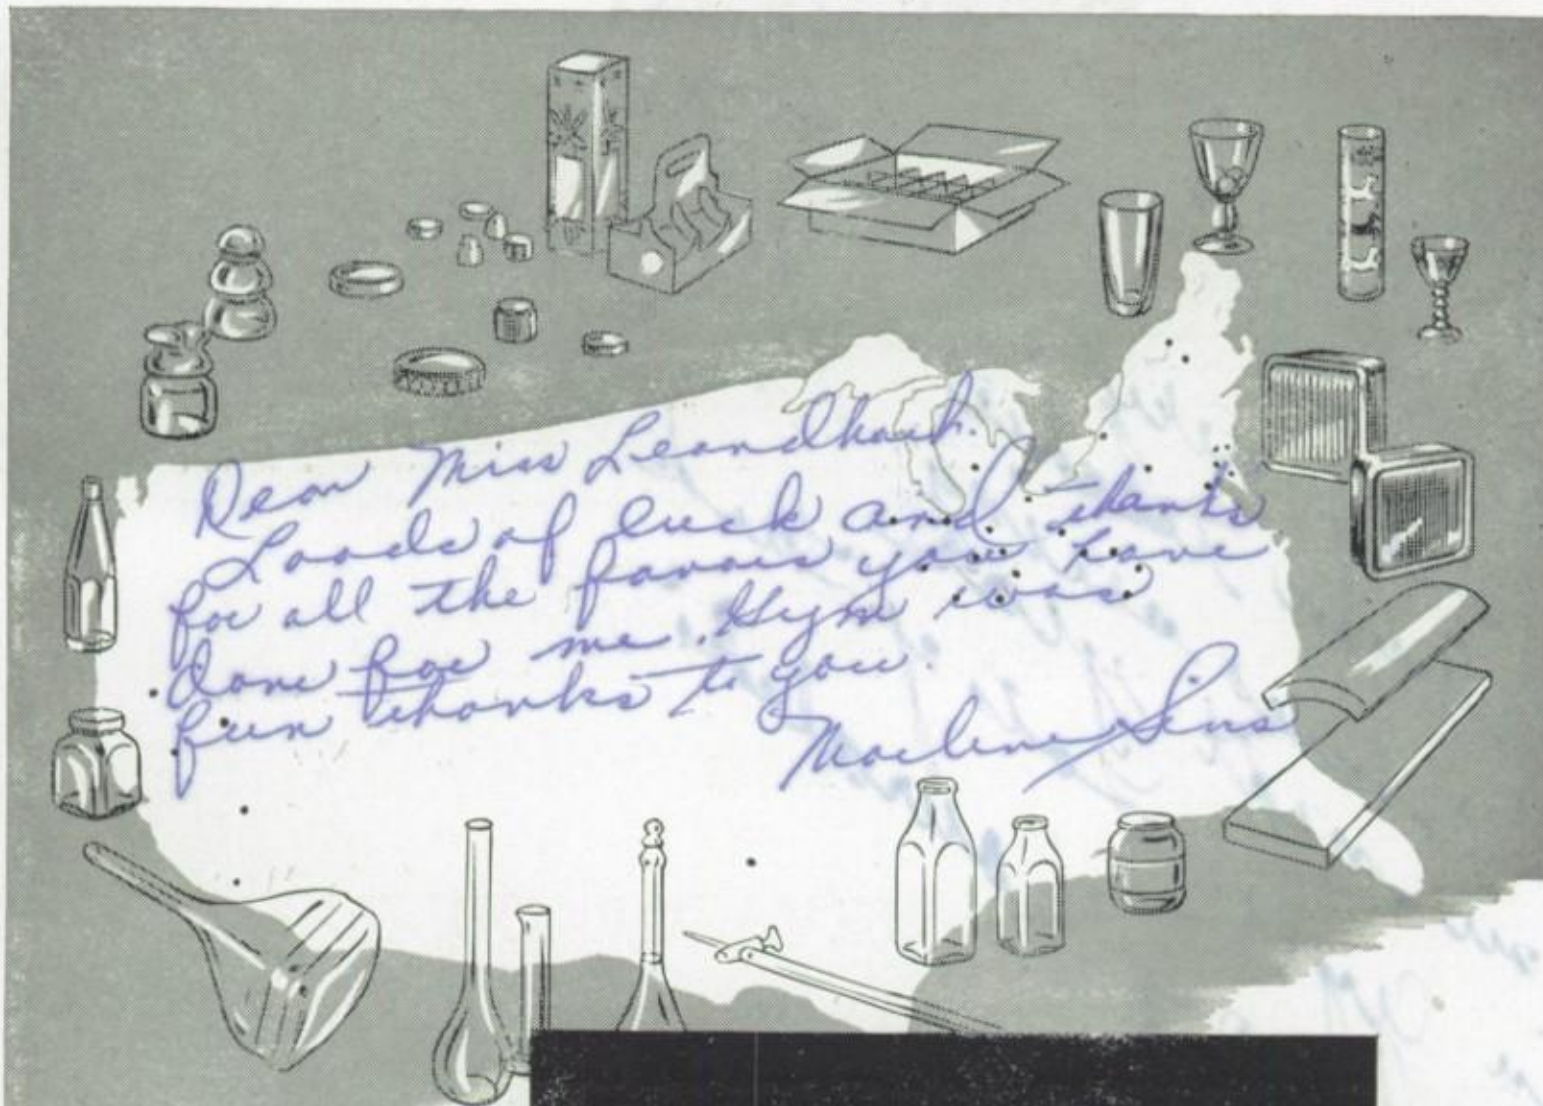 Dear Miss Leandhart.
Loads of luck and thanks
for all the favors you have
done for me. Gym was
fun thanks to you.
Marlene Sins